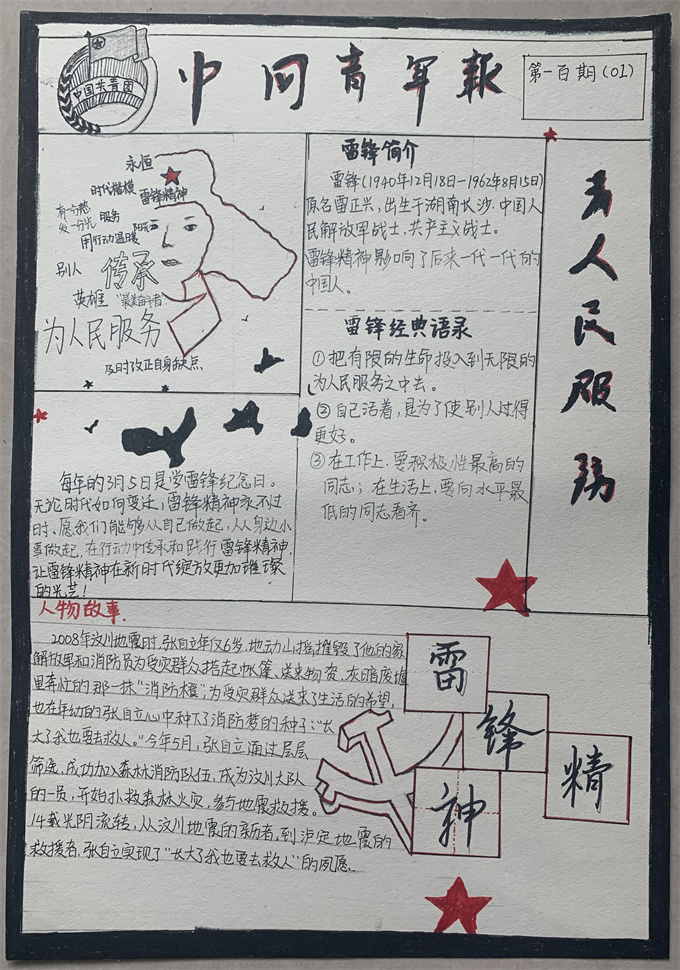 中国共青团
中囘青年報
第一百期(01)
永恒
时代楷模
雷锋精神
有一分热
发一分光
服务
阳光
用行动温暖
别人
传承
英雄
"最美奋斗者"
为人民服务
及时改正自身缺点
雷锋简介
雷锋(1940年12月18日-1962年8月15日)
原名雷正兴,出生于湖南长沙.中国人
民解放军战士,共产主义战士。
雷锋精神影响了后来一代一代的
中国人。
雷锋经典语录
①把有限的生命投入到无限的
为人民服务之中去。
②自己活着,是为了使别人过得
更好。
③在工作上,要积极性最高的
同志;在生活上,要向水平最
低的同志看齐。
为人民服务
每年的3月5日是学雷锋纪念日。
无论时代如何变迁,雷锋精神永不过
时.愿我们能够从自己做起,从身边小
事做起,在行动中传承和践行雷锋精神,
让雷锋精神在新时代绽放更加璀璨
的光芒!
人物故事.
2008年汶川地震时,张自立年仅6岁,地动山摇摧毁了他的家
解放军和消防员为受灾群众搭起帐篷、送来物资,灰暗废墟
里奔忙的那一抹"消防橙",为受灾群众送来了生活的希望,
也在年幼的张自立心中种下了消防梦的种子:"长
大了我也要去救人。"今年5月,张自立通过层层
筛选,成功加入森林消防队伍,成为汶川大队
的一员,开始扑救森林火灾,参与地震救援。
14载光阴流转,从汶川地震的亲历者,到泸定地震的
救援者,张自立实现了"长大了我也要去救人"的夙愿.
雷
锋
精
神